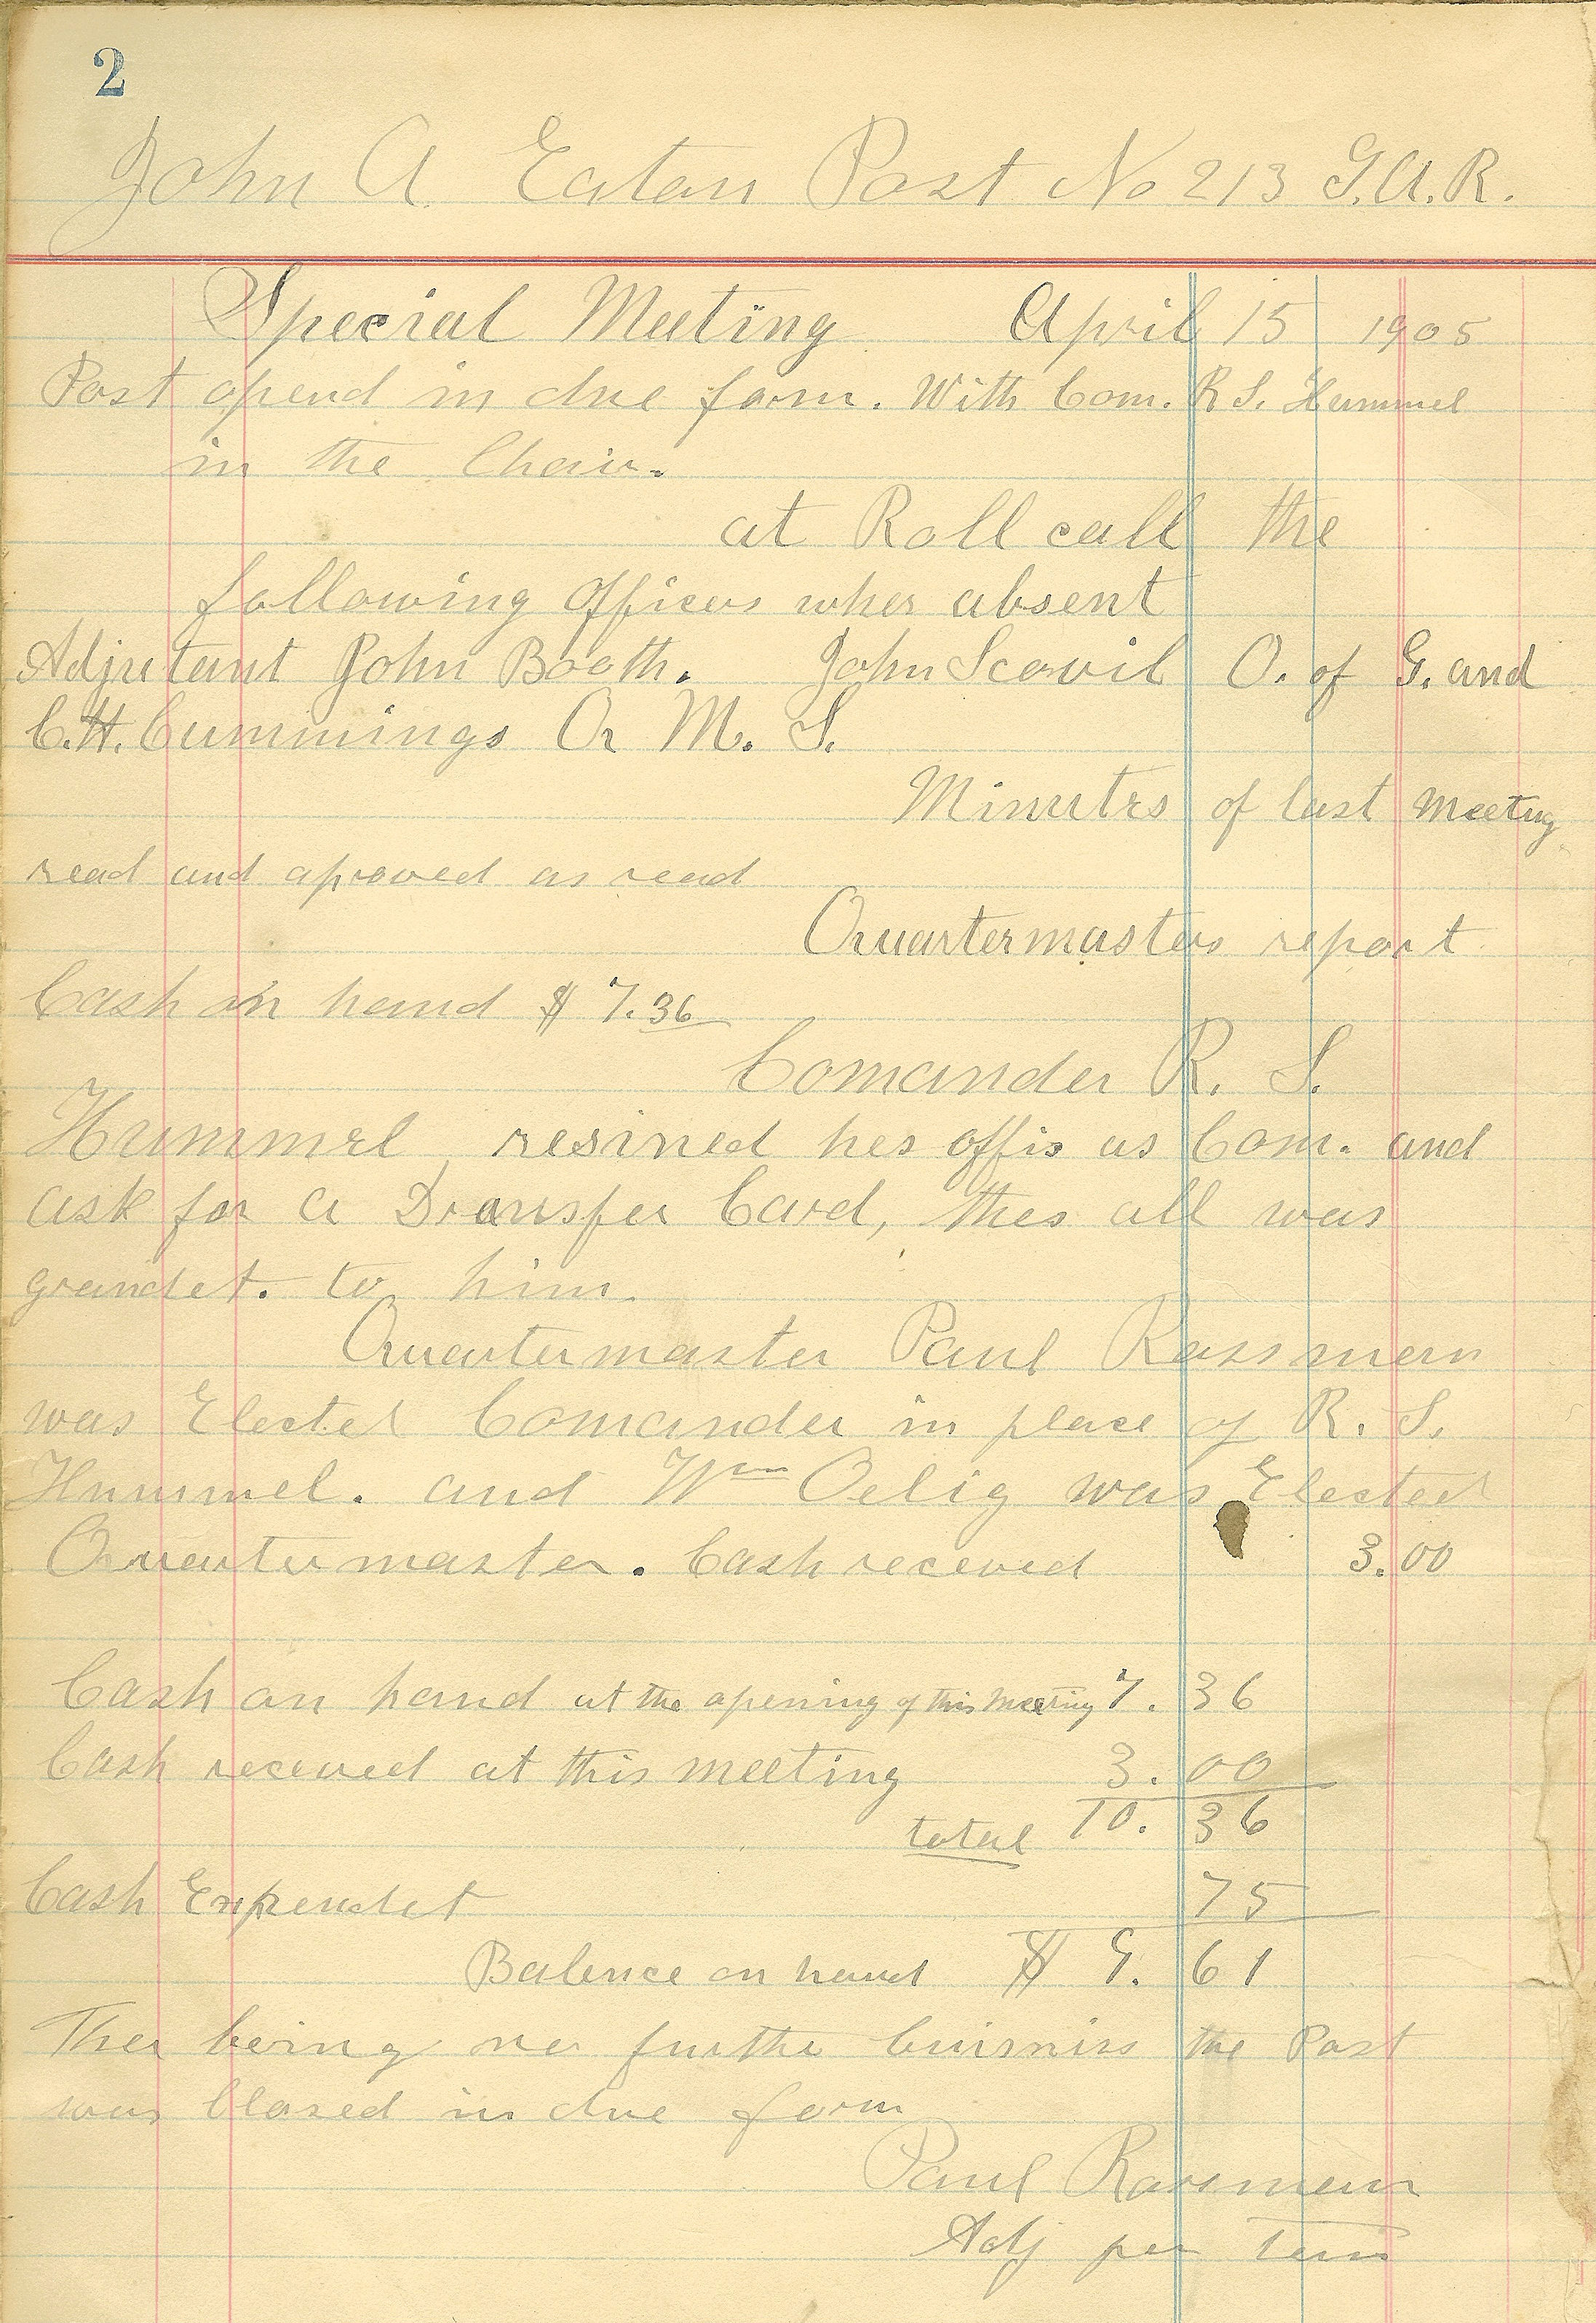 2
John A Eaton Post No 213 G.A.R.
Special Meeting April 15 1905
Post opend in due form. With Com. R S. Hummel
in the Chair.
at Roll call the
following Officers wher absent
Adjutant John Booth. John Scovil O. of G. and
C.H. Cummings Qr M. S.
Minutes of last Meeting
read and aproved as read
Quartermasters report
Cash on hand $ 7.36
Comander R. S.
Hummel, resined hes offis as Com. and
ask for a Transfer Card, thes all was
grandet. to him.
Quartermaster Paul Rassmen
was Elected Comander in place of R. S.
Hummel. and Wm Oelig was Elected
Quartermaster. Cash receved 3.00
Cash on hand at the opening of this Meeting 7.36
Cash receved at this meeting 3.00
total 10.36
Cash Expendet 75
Balence on hand $ 9.61
Ther being no furthe buisniss the Post
was Closed in due form
Paul Rasmenn
Adj per tem